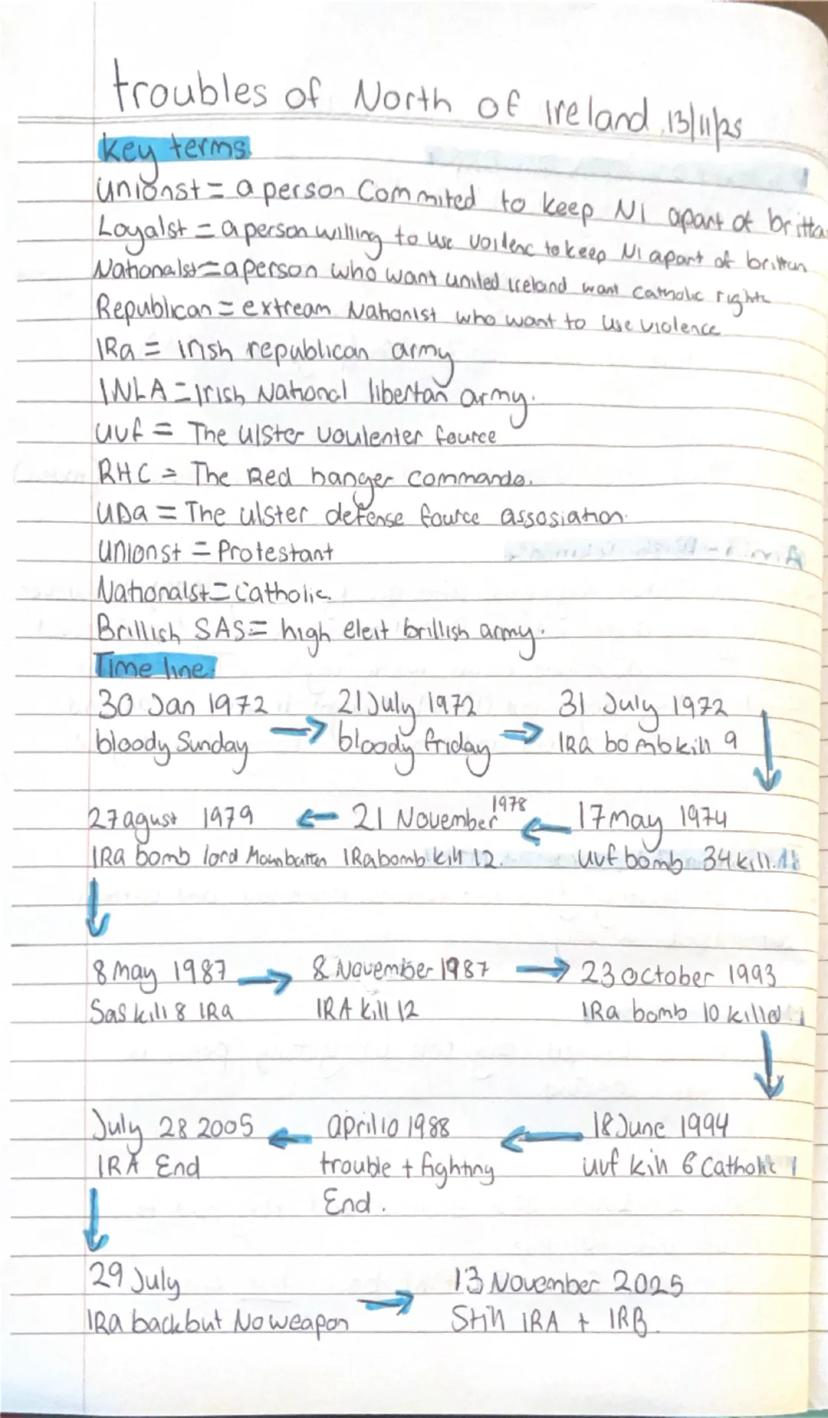 troubles of North of Ireland 13/11/25
key terms
Unionst = a person Commited to keep NI apart of britta
Loyalst = a person willing to use voilenc to keep NI apart of britten
Nationalst = a person who want united Ireland want catholic rights
Republican = extream Nationist who want to use violence
IRa = Irish republican army
INLA = Irish National libertan army.
UVf = The Ulster voulenter fource
RHC = The Red hanger commando.
UDa = The ulster defense fource assosiation.
Unionst = Protestant
Nationalst = Catholic.
Brillish SAS = high eleit brillish army.
Time line:
30 Jan 1972 → 21 July 1972 → 31 July 1972
bloody Sunday bloody friday IRa bomb kill 9
27 agust 1979 ← 21 November 1978 ← 17 may 1974
IRa bomb lord Mounbatten IRa bomb kill 12. UVf bomb 34 kill.
8 May 1987 → 8 November 1987 → 23 october 1993
Sas kill 8 IRa IRA kill 12 IRa bomb 10 killed
July 28 2005 ← april 10 1988 ← 18 June 1994
IRA End trouble + fighting uvf kill 6 Catholic
End.
29 July → 13 November 2025
IRa back but No weapon Still IRA + IRB.